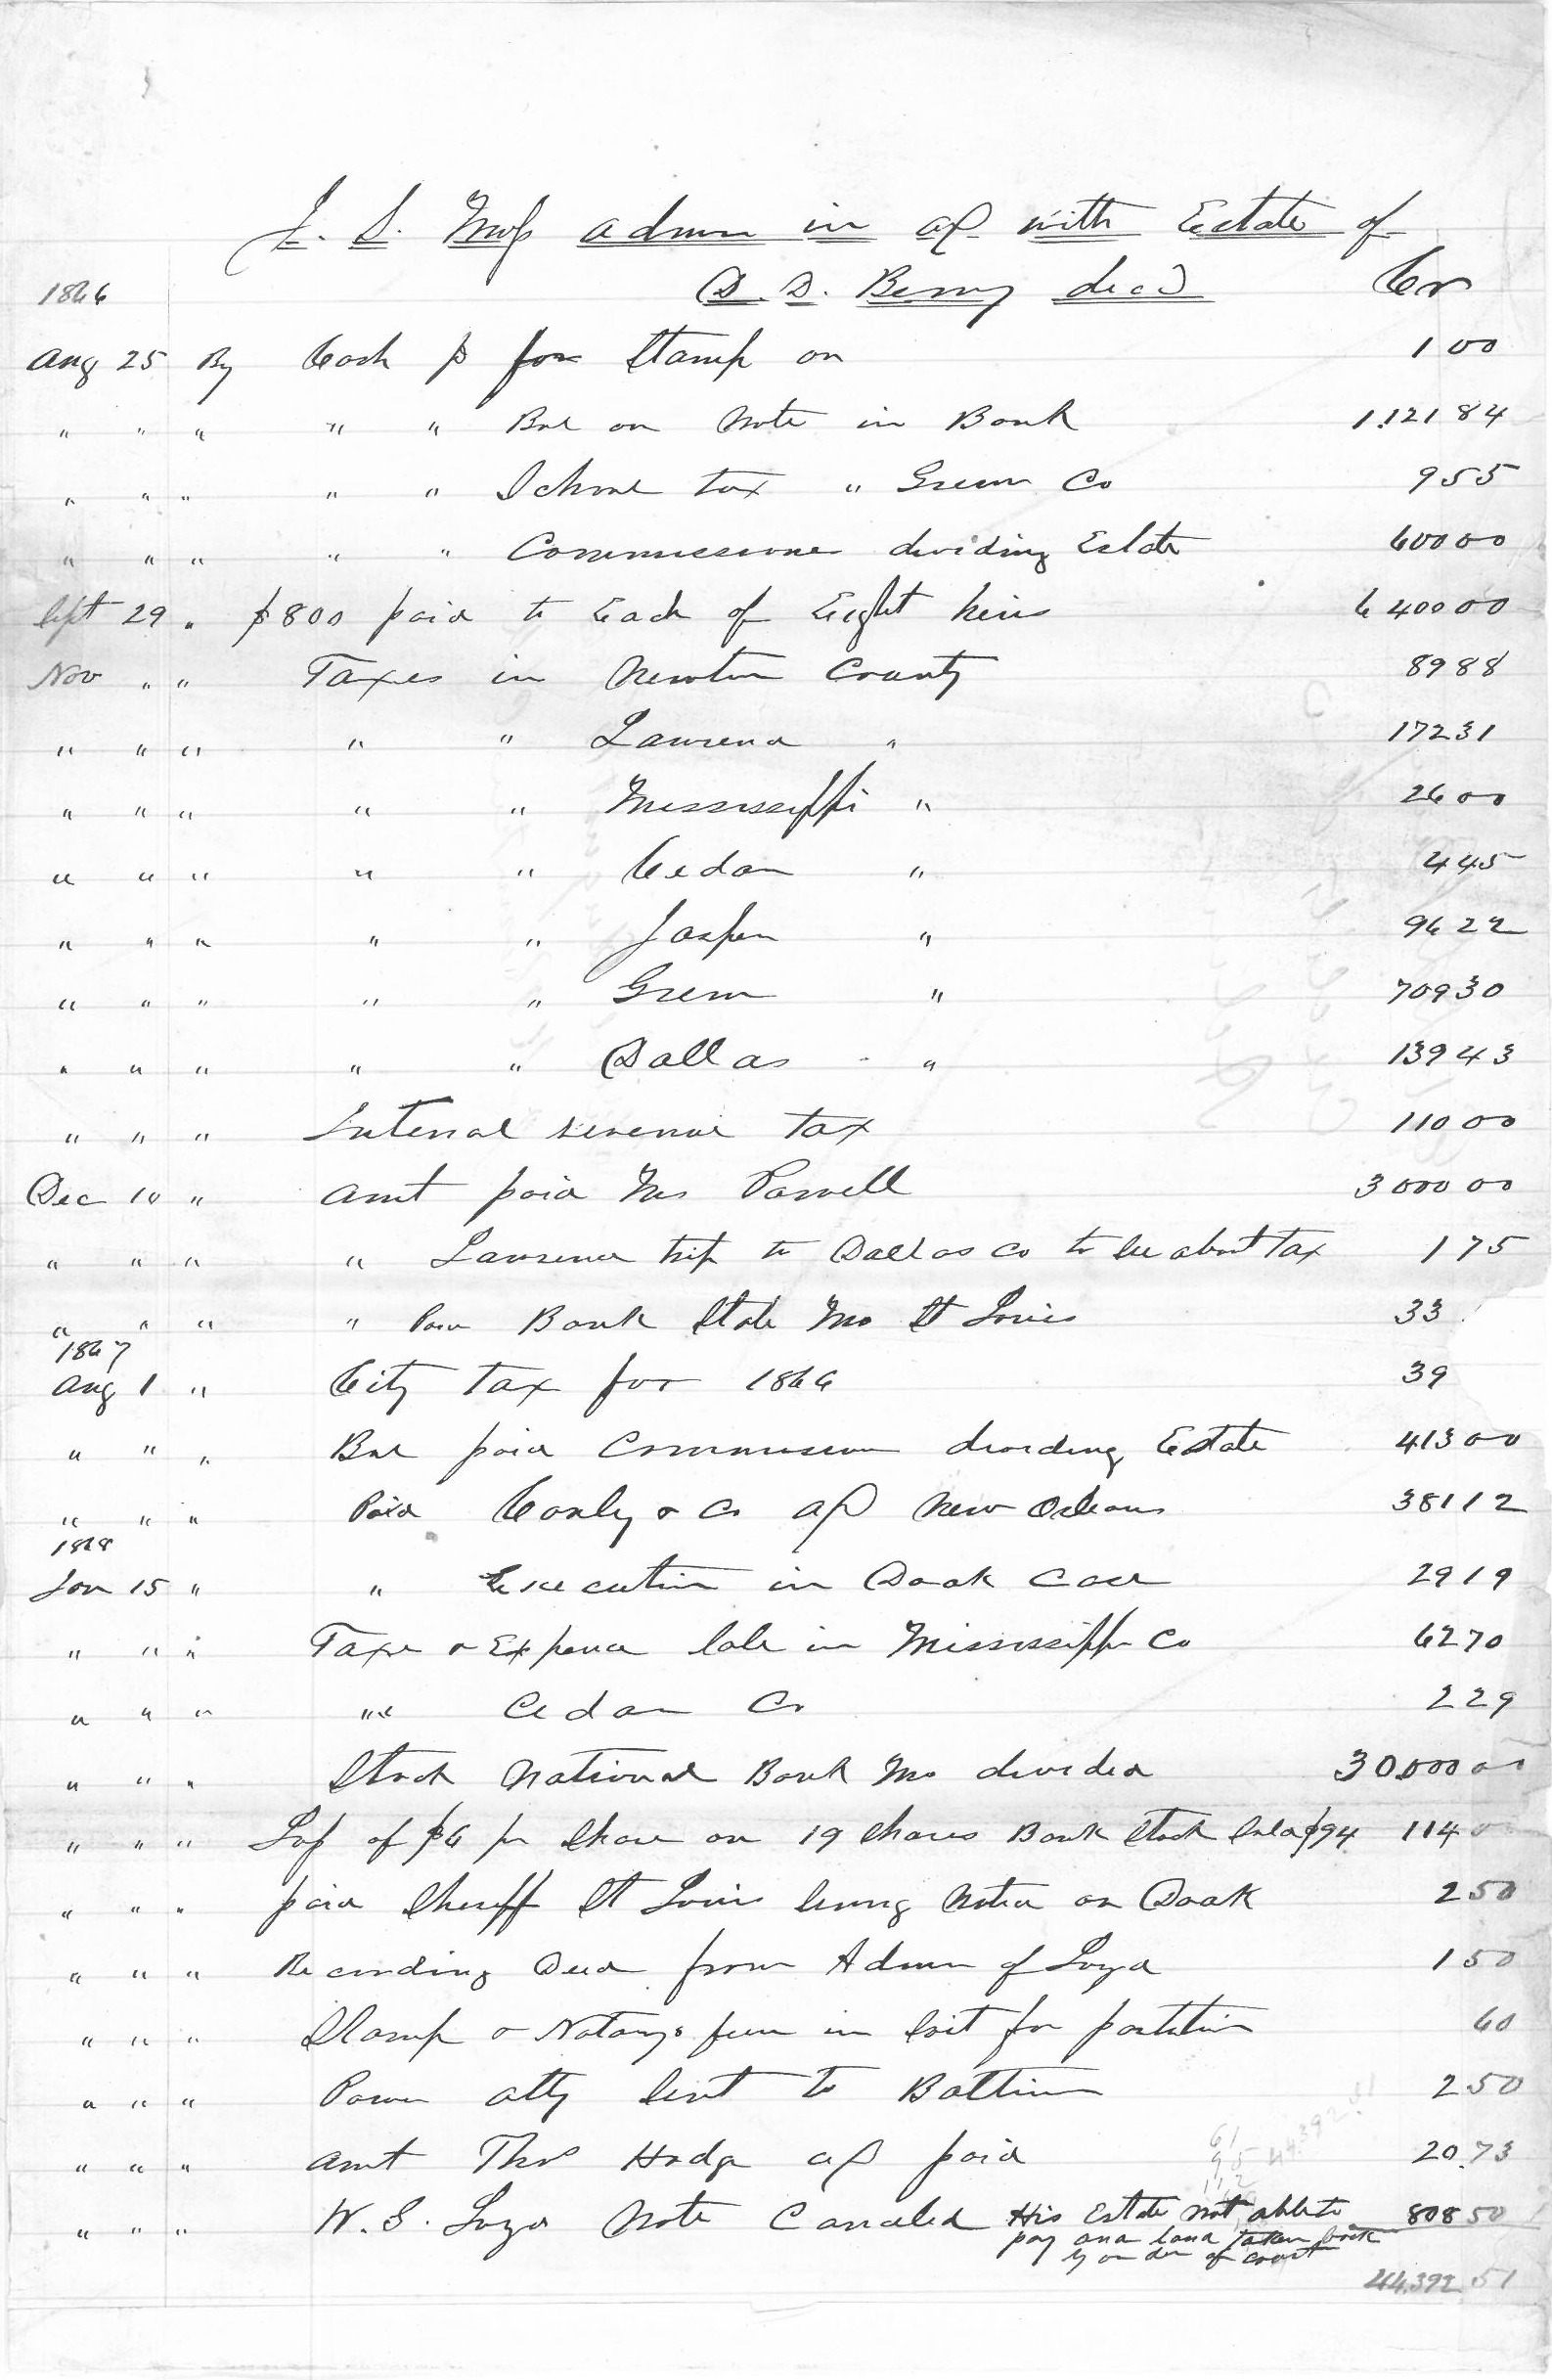 J. S. Moss admin in a/c with Estate of
1866 D. D. Berry decd Cr
Aug 25 By Cash p for Stamp on 1 00
" " " " " Bal on Note in Bank 1,121 84
" " " " " School tax " Green Co 9 55
" " " " " Commissioner dividing Estate 600 00
Sept 29 " $800 paid to Each of Eight heirs 6 400 00
Nov " " Taxes in Newton County 89 88
" " " " " Lawrence " 172 31
" " " " " Mississippi " 26 00
" " " " " Cedar " 4 45
" " " " " Jasper " 96 22
" " " " " Green " 709 30
" " " " " Dallas " 139 43
" " " Internal revenue tax 110 00
Dec 10 " amt paid Mrs Parnell 3 000 00
" " " " Lawrence trip to Dallas Co to see about tax 1 75
" " " " Bank State Mo St Louis 33
1867
Aug 1 " City tax for 1866 39
" " " Bal paid Commission dividing Estate 413 00
" " " Paid Conly & Co a/c New Orleans 381 12
1868
Jan 15 " " Execution in Doak Case 29 19
" " " Taxe & Expence Sale in Mississippi Co 62 70
" " " "" Cedar Co 2 29
" " " Stock National Bank Mo divided 30,000 00
" " " Loss of $6 pr Share on 19 Shares Bank Stock Sold $94 114 00
" " " paid Sheriff St Louis serving Notice on Doak 2 50
" " " Recording Deed from Admr of Loyd 1 50
" " " Stamp & Notarys fees in Suit for partition 60
" " " Power atty sent to 2 50
" " " amt Thos Hodge a/c paid 20.73
" " " W. S. Loyd Note Canceled His Estate not able to 808 50
pay and land taken back
by order of court
44,392 51